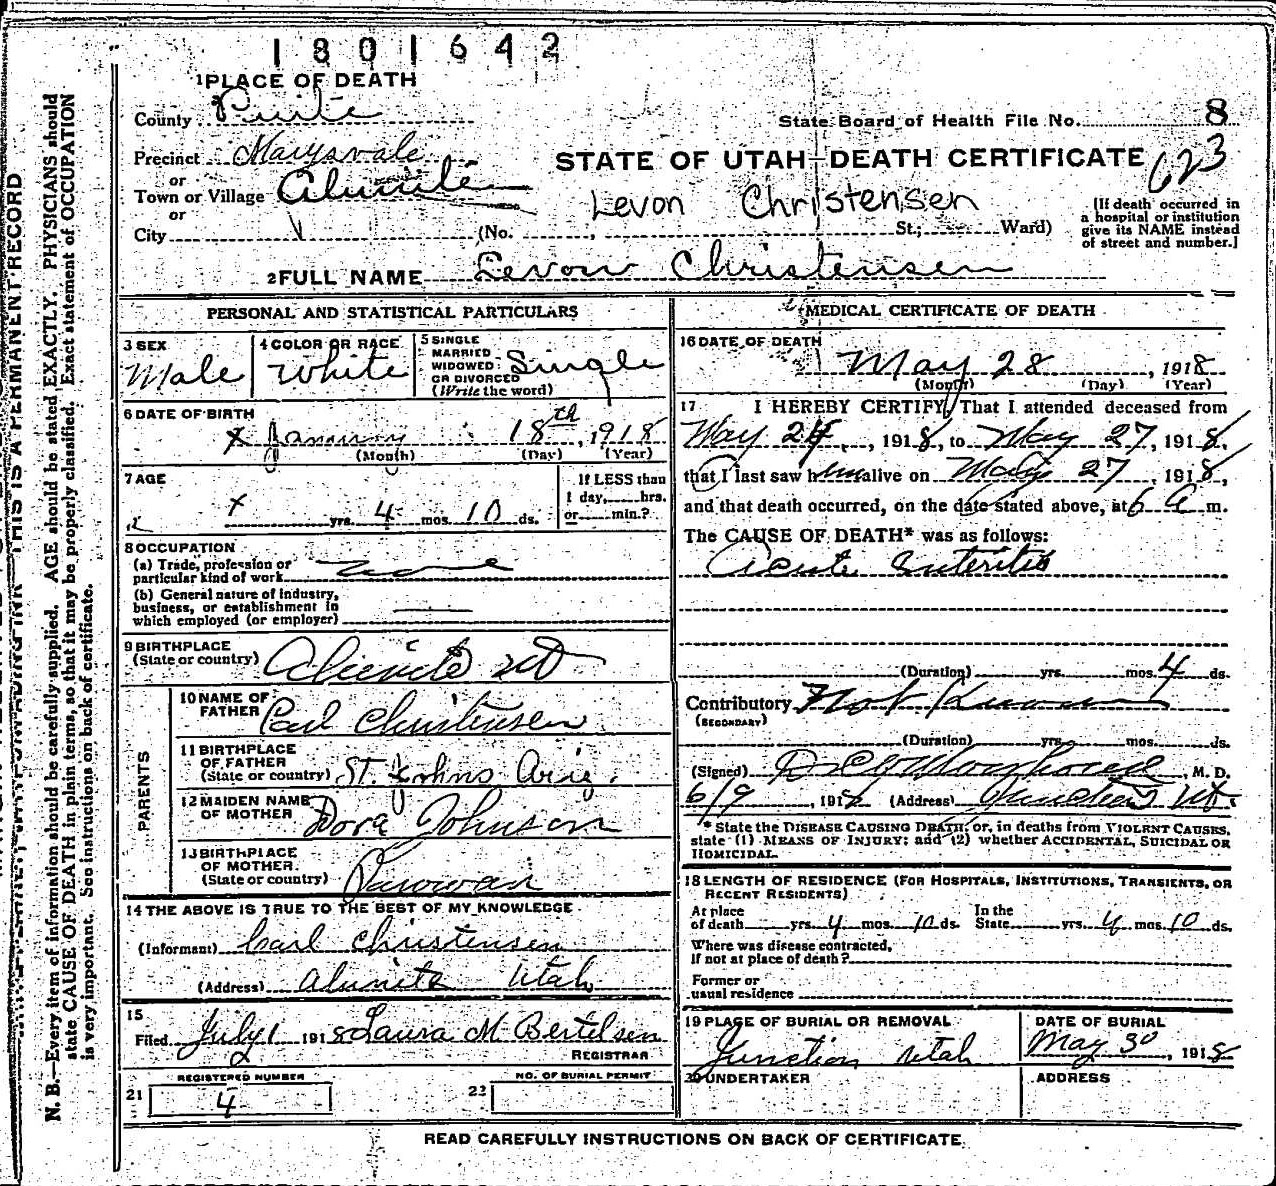 1801642
1 PLACE OF DEATH
County Piute
State Board of Health File No. 8
Precinct Marysvale
STATE OF UTAH—DEATH CERTIFICATE
623
or
Town or Village Alunite
or
Levon Christensen
City (No. , St.; Ward)
[If death occurred in
a hospital or institution
give its NAME instead
of street and number.]
2 FULL NAME Levon Christensen
PERSONAL AND STATISTICAL PARTICULARS
3 SEX
Male
4 COLOR OR RACE
White
5 SINGLE
MARRIED
WIDOWED
OR DIVORCED
(Write the word)
Single
6 DATE OF BIRTH
x January 18th, 1918
(Month) (Day) (Year)
7 AGE
x yrs. 4 mos. 10 ds.
If LESS than
1 day, hrs.
or min.?
8 OCCUPATION
(a) Trade, profession or
particular kind of work None
(b) General nature of industry,
business, or establishment in
which employed (or employer)
9 BIRTHPLACE
(State or country) Alunite Ut
PARENTS
10 NAME OF
FATHER Carl Christensen
11 BIRTHPLACE
OF FATHER
(State or country) St. Johns Ariz.
12 MAIDEN NAME
OF MOTHER Dora Johnson
13 BIRTHPLACE
OF MOTHER
(State or country) Parowan
14 THE ABOVE IS TRUE TO THE BEST OF MY KNOWLEDGE
(Informant) Carl Christensen
(Address) Alunite Utah
15
Filed July 1 1918 Laura M Bertelsen
REGISTRAR
21 REGISTERED NUMBER
4
22 NO. OF BURIAL PERMIT
MEDICAL CERTIFICATE OF DEATH
16 DATE OF DEATH
May 28, 1918
(Month) (Day) (Year)
17 I HEREBY CERTIFY, That I attended deceased from
May 24, 1918, to May 27, 1918,
that I last saw him alive on May 27, 1918,
and that death occurred, on the date stated above, at 6 a m.
The CAUSE OF DEATH* was as follows:
Acute Enteritis
(Duration) yrs. mos. 4 ds.
Contributory Not Known
(SECONDARY)
(Duration) yrs. mos. ds.
(Signed) , M. D.
6/9, 1918 (Address) Junction Ut.
* State the DISEASE CAUSING DEATH; or, in deaths from VIOLENT CAUSES,
state (1) MEANS OF INJURY; and (2) whether ACCIDENTAL, SUICIDAL OR
HOMICIDAL.
18 LENGTH OF RESIDENCE (FOR HOSPITALS, INSTITUTIONS, TRANSIENTS, OR
RECENT RESIDENTS)
At place
of death yrs. 4 mos. 10 ds.
In the
State yrs. 4 mos. 10 ds.
Where was disease contracted,
If not at place of death?
Former or
usual residence
19 PLACE OF BURIAL OR REMOVAL
Junction Utah
DATE OF BURIAL
May 30, 1918
20 UNDERTAKER
ADDRESS
READ CAREFULLY INSTRUCTIONS ON BACK OF CERTIFICATE.
THIS IS A PERMANENT RECORD
N. B.—Every item of information should be carefully supplied. AGE should be stated EXACTLY. PHYSICIANS should
state CAUSE OF DEATH in plain terms, so that it may be properly classified. Exact statement of OCCUPATION
is very important. See instructions on back of certificate.